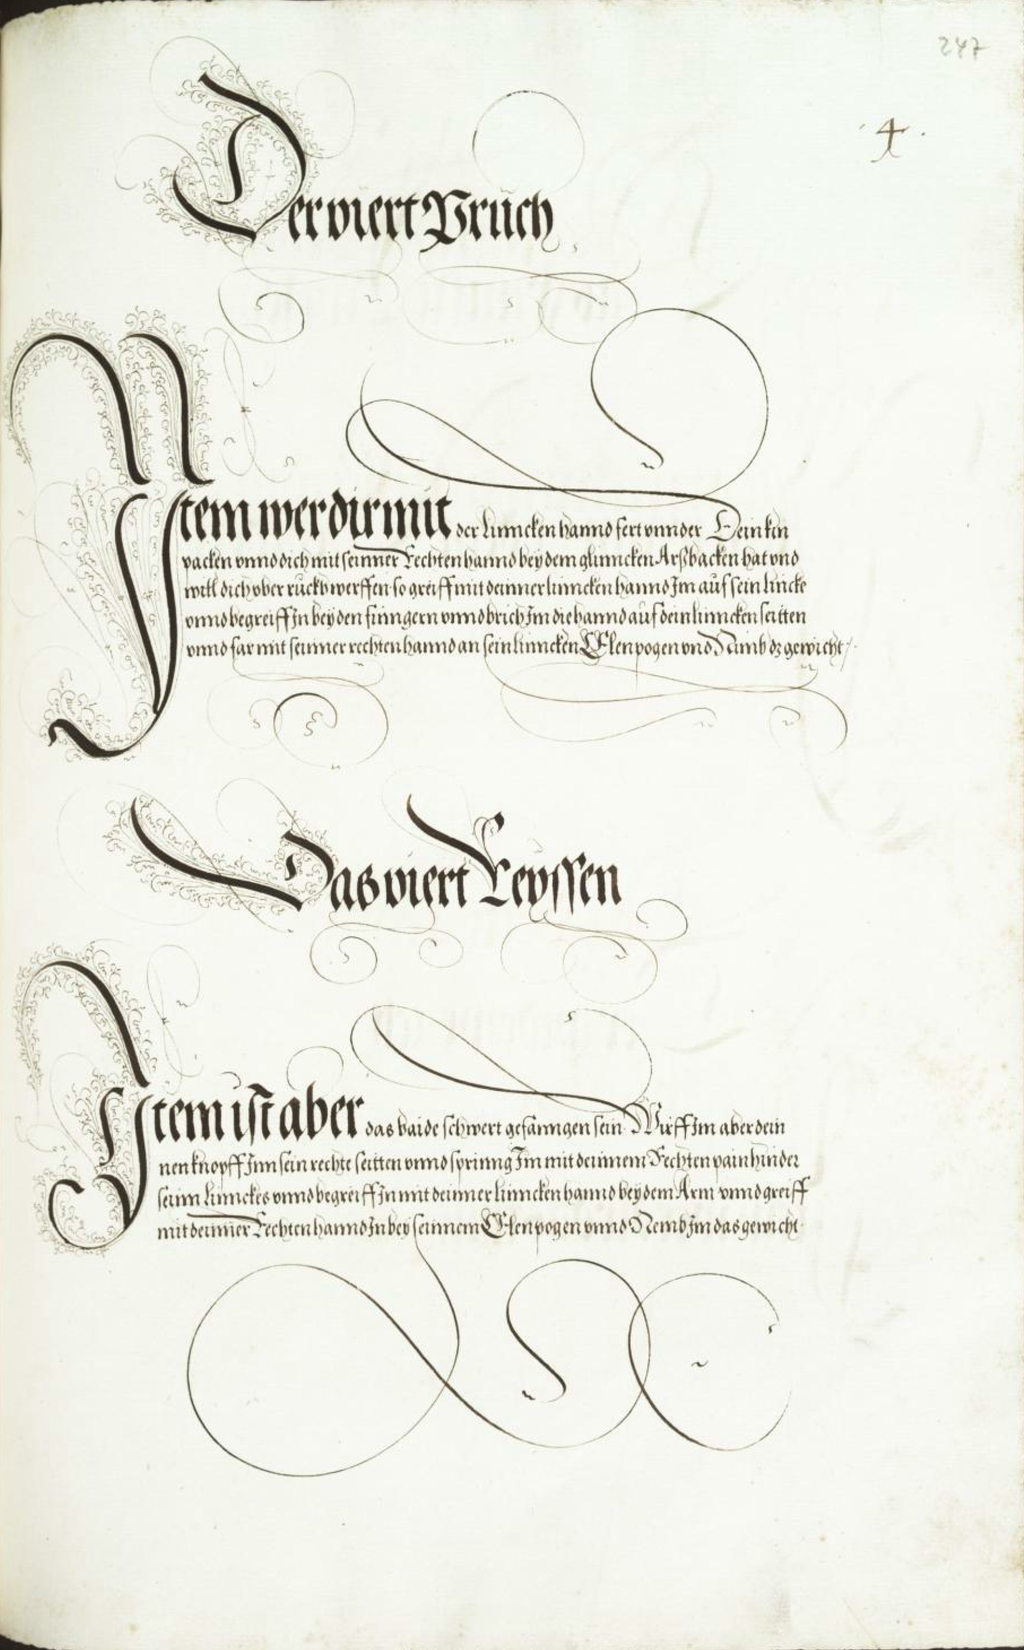 247
.4.
Der viert Pruch
Item wer dir mit der linncken hannd fert vnnder Dein kin
packen vnnd dich mit seinner Rechten hannd bey dem glinncken Arßbacken hat vnd
will dich vber ruckh werffen so greiff mit deinner linncken hannd Im auf sein lincke
vnnd begreiff In bey den finngern vnnd brich Im die hannd auf dein linncken seitten
vnnd far mit seinner rechten hannd an sein linncken Elenpogen vnd Nimb dz gewicht
Das viert Reyssen
Item ist aber das baide schwert gefanngen sein Wirff Im aber dein
nen knopff Inn sein rechte seitten vnnd sprinng Im mit deinnem Rechten pain hinder
seinn linnckes vnnd begreiff In mit deinner linncken hannd bey dem Arm vnnd greiff
mit deinner Rechten hannd In bey seinnem Elenpogen vnnd Nemb Im das gewicht